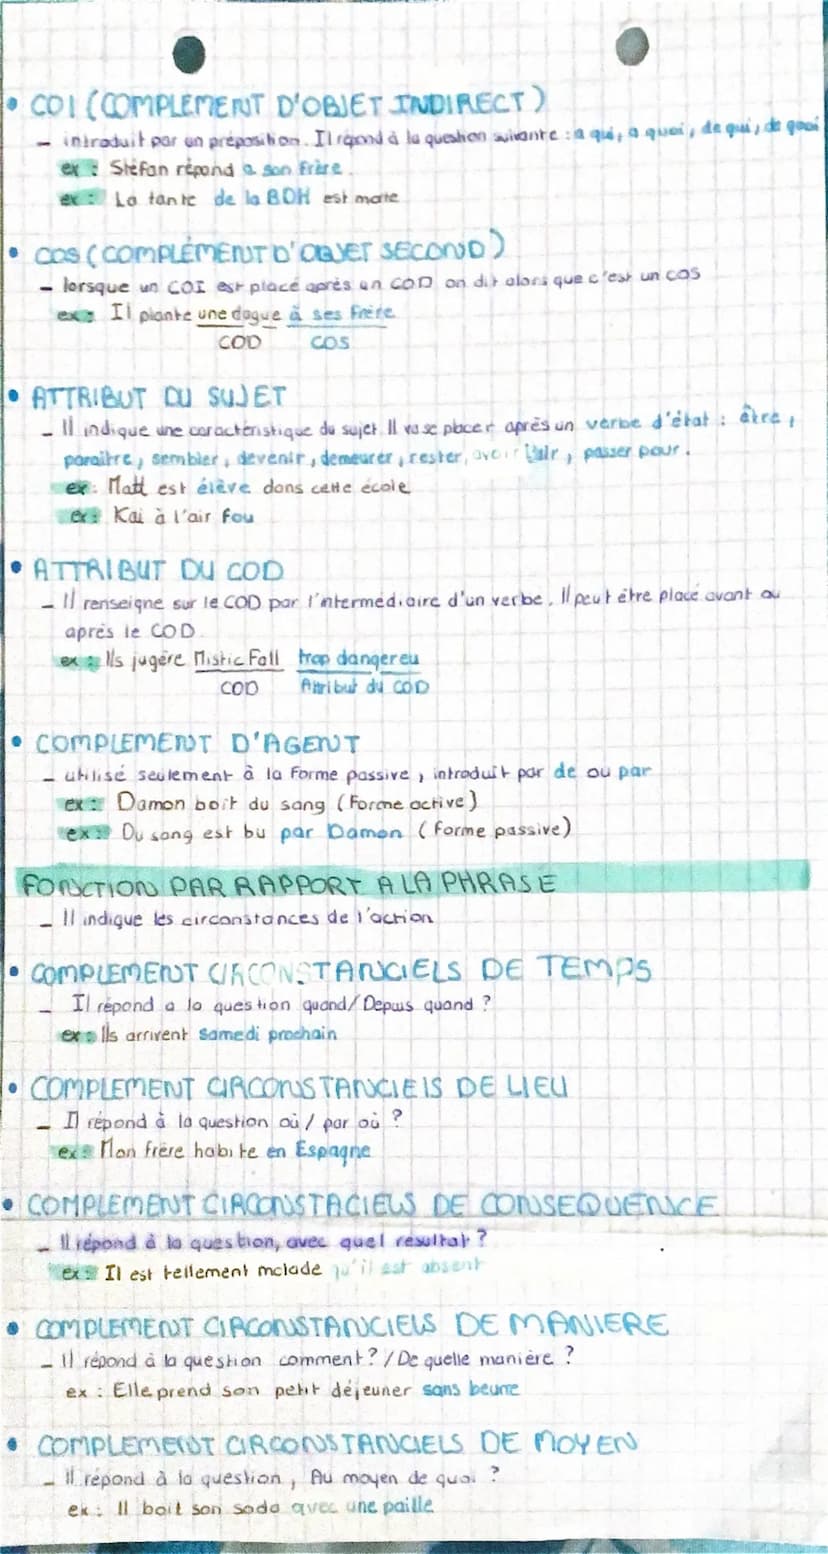 • COI (COMPLÉMENT D'OBJET INDIRECT)
– introduit par un préposition. Il répond à la question suivante : a qui, a quoi, de qui, de quoi
ex : Stéfan répond a son frère.
ex : La tante de la BDH est morte
• COS (COMPLÉMENT D'OBJET SECOND)
– lorsque un COI est placé après un COD on dit alors que c'est un COS
ex : Il plante une dague à ses frère
COD COS
• ATTRIBUT DU SUJET
– Il indique une caractéristique du sujet. Il va se placer après un verbe d'état : être,
paraître, sembler, devenir, demeurer, rester, avoir l'air, passer pour.
ex : Matt est élève dans cette école
ex : Kai à l'air fou
• ATTRIBUT DU COD
– Il renseigne sur le COD par l'intermédiaire d'un verbe. Il peut être placé avant ou
après le COD.
ex : Ils jugère Mistic Fall trop dangereu
COD Attribut du COD
• COMPLEMENT D'AGENT
– utilisé seulement à la forme passive, introduit par de ou par
ex : Damon boit du sang (Forme active)
ex : Du sang est bu par Damon (forme passive)
FONCTION PAR RAPPORT A LA PHRASE
– Il indique les circonstances de l'action
• COMPLEMENT CIRCONSTANCIELS DE TEMPS
– Il répond a la question quand/Depuis quand ?
ex : Ils arrivent samedi prochain
• COMPLEMENT CIRCONSTANCIELS DE LIEU
– Il répond à la question où / par où ?
ex : Mon frère habite en Espagne
• COMPLEMENT CIRCONSTACIELS DE CONSEQUENCE
– Il répond à la question, avec quel résultat ?
ex : Il est tellement malade qu'il est absent
• COMPLEMENT CIRCONSTANCIELS DE MANIERE
– Il répond à la question comment ? / De quelle manière ?
ex : Elle prend son petit déjeuner sans beurre
• COMPLEMENT CIRCONSTANCIELS DE MOYEN
– Il répond à la question, Au moyen de quoi ?
ex : Il boit son soda avec une paille